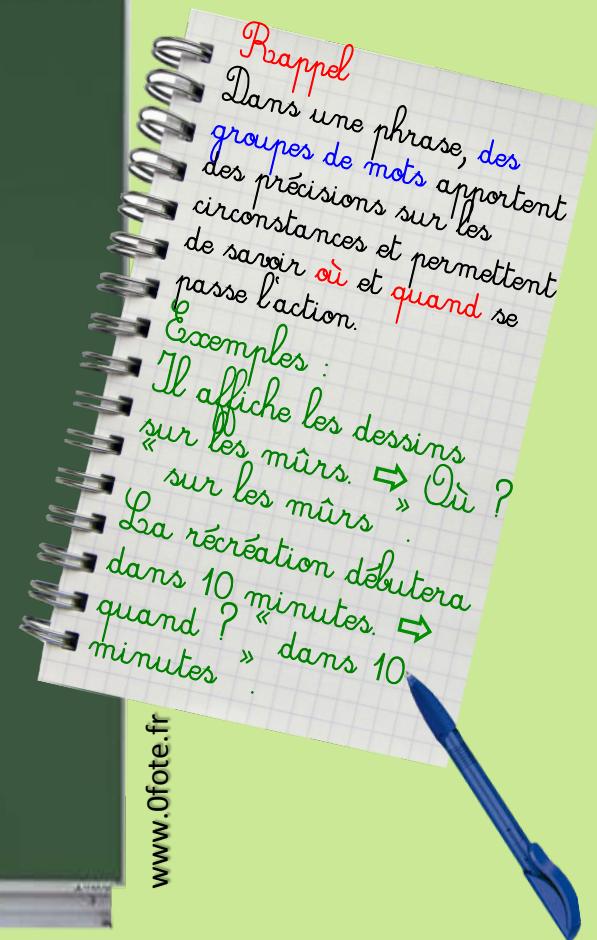 Rappel
Dans une phrase, des
groupes de mots apportent
des précisions sur les
circonstances et permettent
de savoir où et quand se
passe l'action.
Exemples :
Il affiche les dessins
sur les mûrs. ⇨ Où ?
« sur les mûrs » .
La récréation débutera
dans 10 minutes. ⇨
quand ? « dans 10
minutes » .
www.0fote.fr